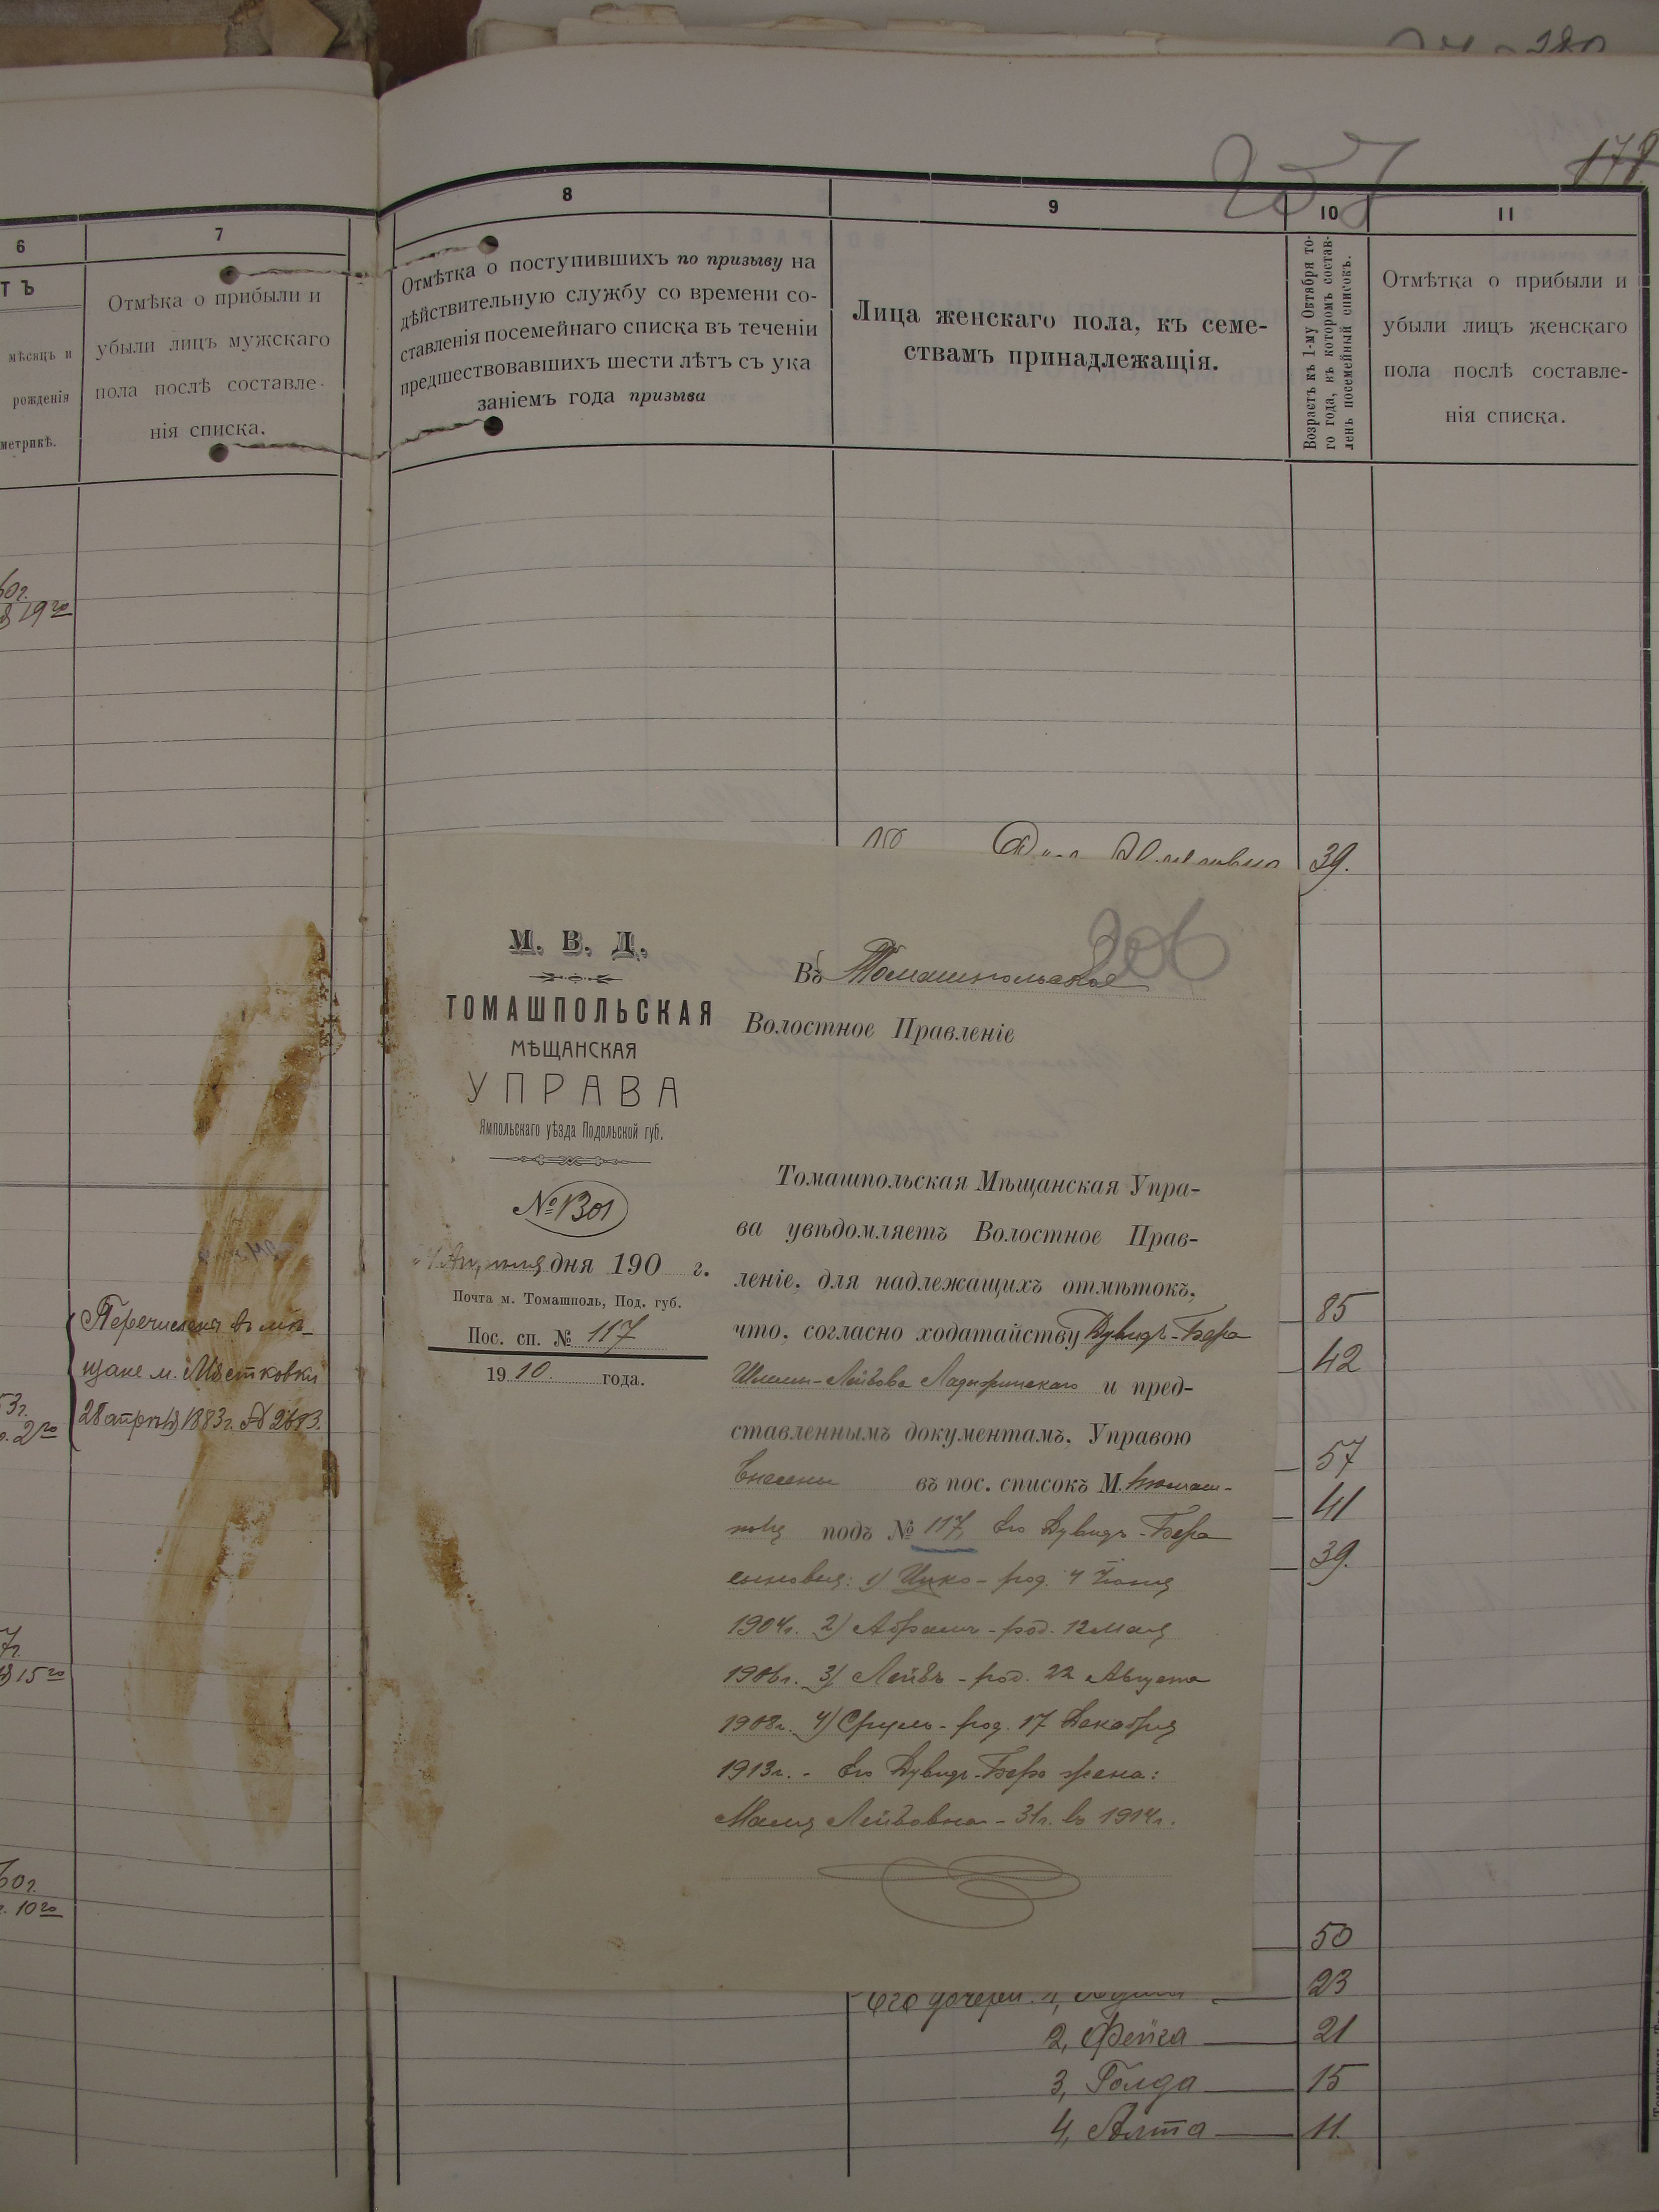 257
178
6
7
8
9
10
11
ТЪ
мѣсяцъ и
рожденія
метрикѣ.
Отмѣка о прибыли и
убыли лицъ мужскаго
пола послѣ составле-
нія списка.
Отмѣтка о поступившихъ по призыву на
дѣйствительную службу со времени со-
ставленія посемейнаго списка въ теченіи
предшествовавшихъ шести лѣтъ съ ука
заніемъ года призыва
Лица женскаго пола, къ семе-
ствамъ принадлежащія.
Возрастъ къ 1-му Октября то-
го года, въ которомъ состав-
ленъ посемейный списокъ.
Отмѣтка о прибыли и
убыли лицъ женскаго
пола послѣ составле-
нія списка.
39.
206
М. В. Д.
ТОМАШПОЛЬСКАЯ
МѢЩАНСКАЯ
УПРАВА
Ямпольскаго уѣзда Подольской губ.
№ 1301
Апрѣля дня 190 г.
Почта м. Томашполь, Под. губ.
Пос. сп. № 117
1910 года.
Въ Томашпольское
Волостное Правленіе
Томашпольская Мѣщанская Упра-
ва увѣдомляетъ Волостное Прав-
леніе, для надлежащихъ отмѣтокъ,
что, согласно ходатайству Дувидъ-Бера
Шлемы-Лейбова Ладыжинскаго и пред-
ставленнымъ документамъ, Управою
внесены въ пос. списокъ М. Томаш-
поля подъ № 117, его Дувидъ-Бера
сыновья: 1) Ицко - род. 4 Іюня
1904г. 2) Абрамъ - род. 12 Мая
1906г. 3) Лейбъ - род. 22 Августа
1908г. 4) Сруль - род. 17 Декабря
1913г. - его Дувидъ-Бера жена:
Маля Лейбовна - 31г. въ 1914г.
Перечислены въ мѣ-
щане м. Мястковки
28 апрѣля 1883г. № 2683.
85
42
57
41
39.
50
Его дочери: 1, 23
2, Фейга 21
3, Голда 15
4, Алта 11.